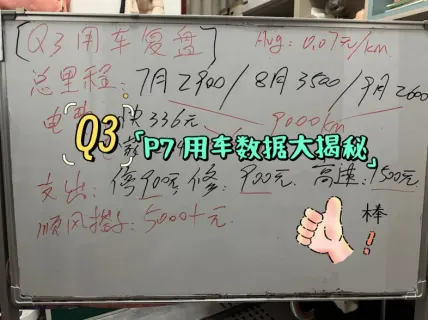 【Q3用车复盘】 Avg: 0.07元/km
总里程: 7月2900/8月3500/9月2600
9000km
电 快336元
Q3 「P7用车数据大揭秘」
支出: 停900元, 修: 900元. 高速: 1500元
顺风搭子: 5000十元.
棒!